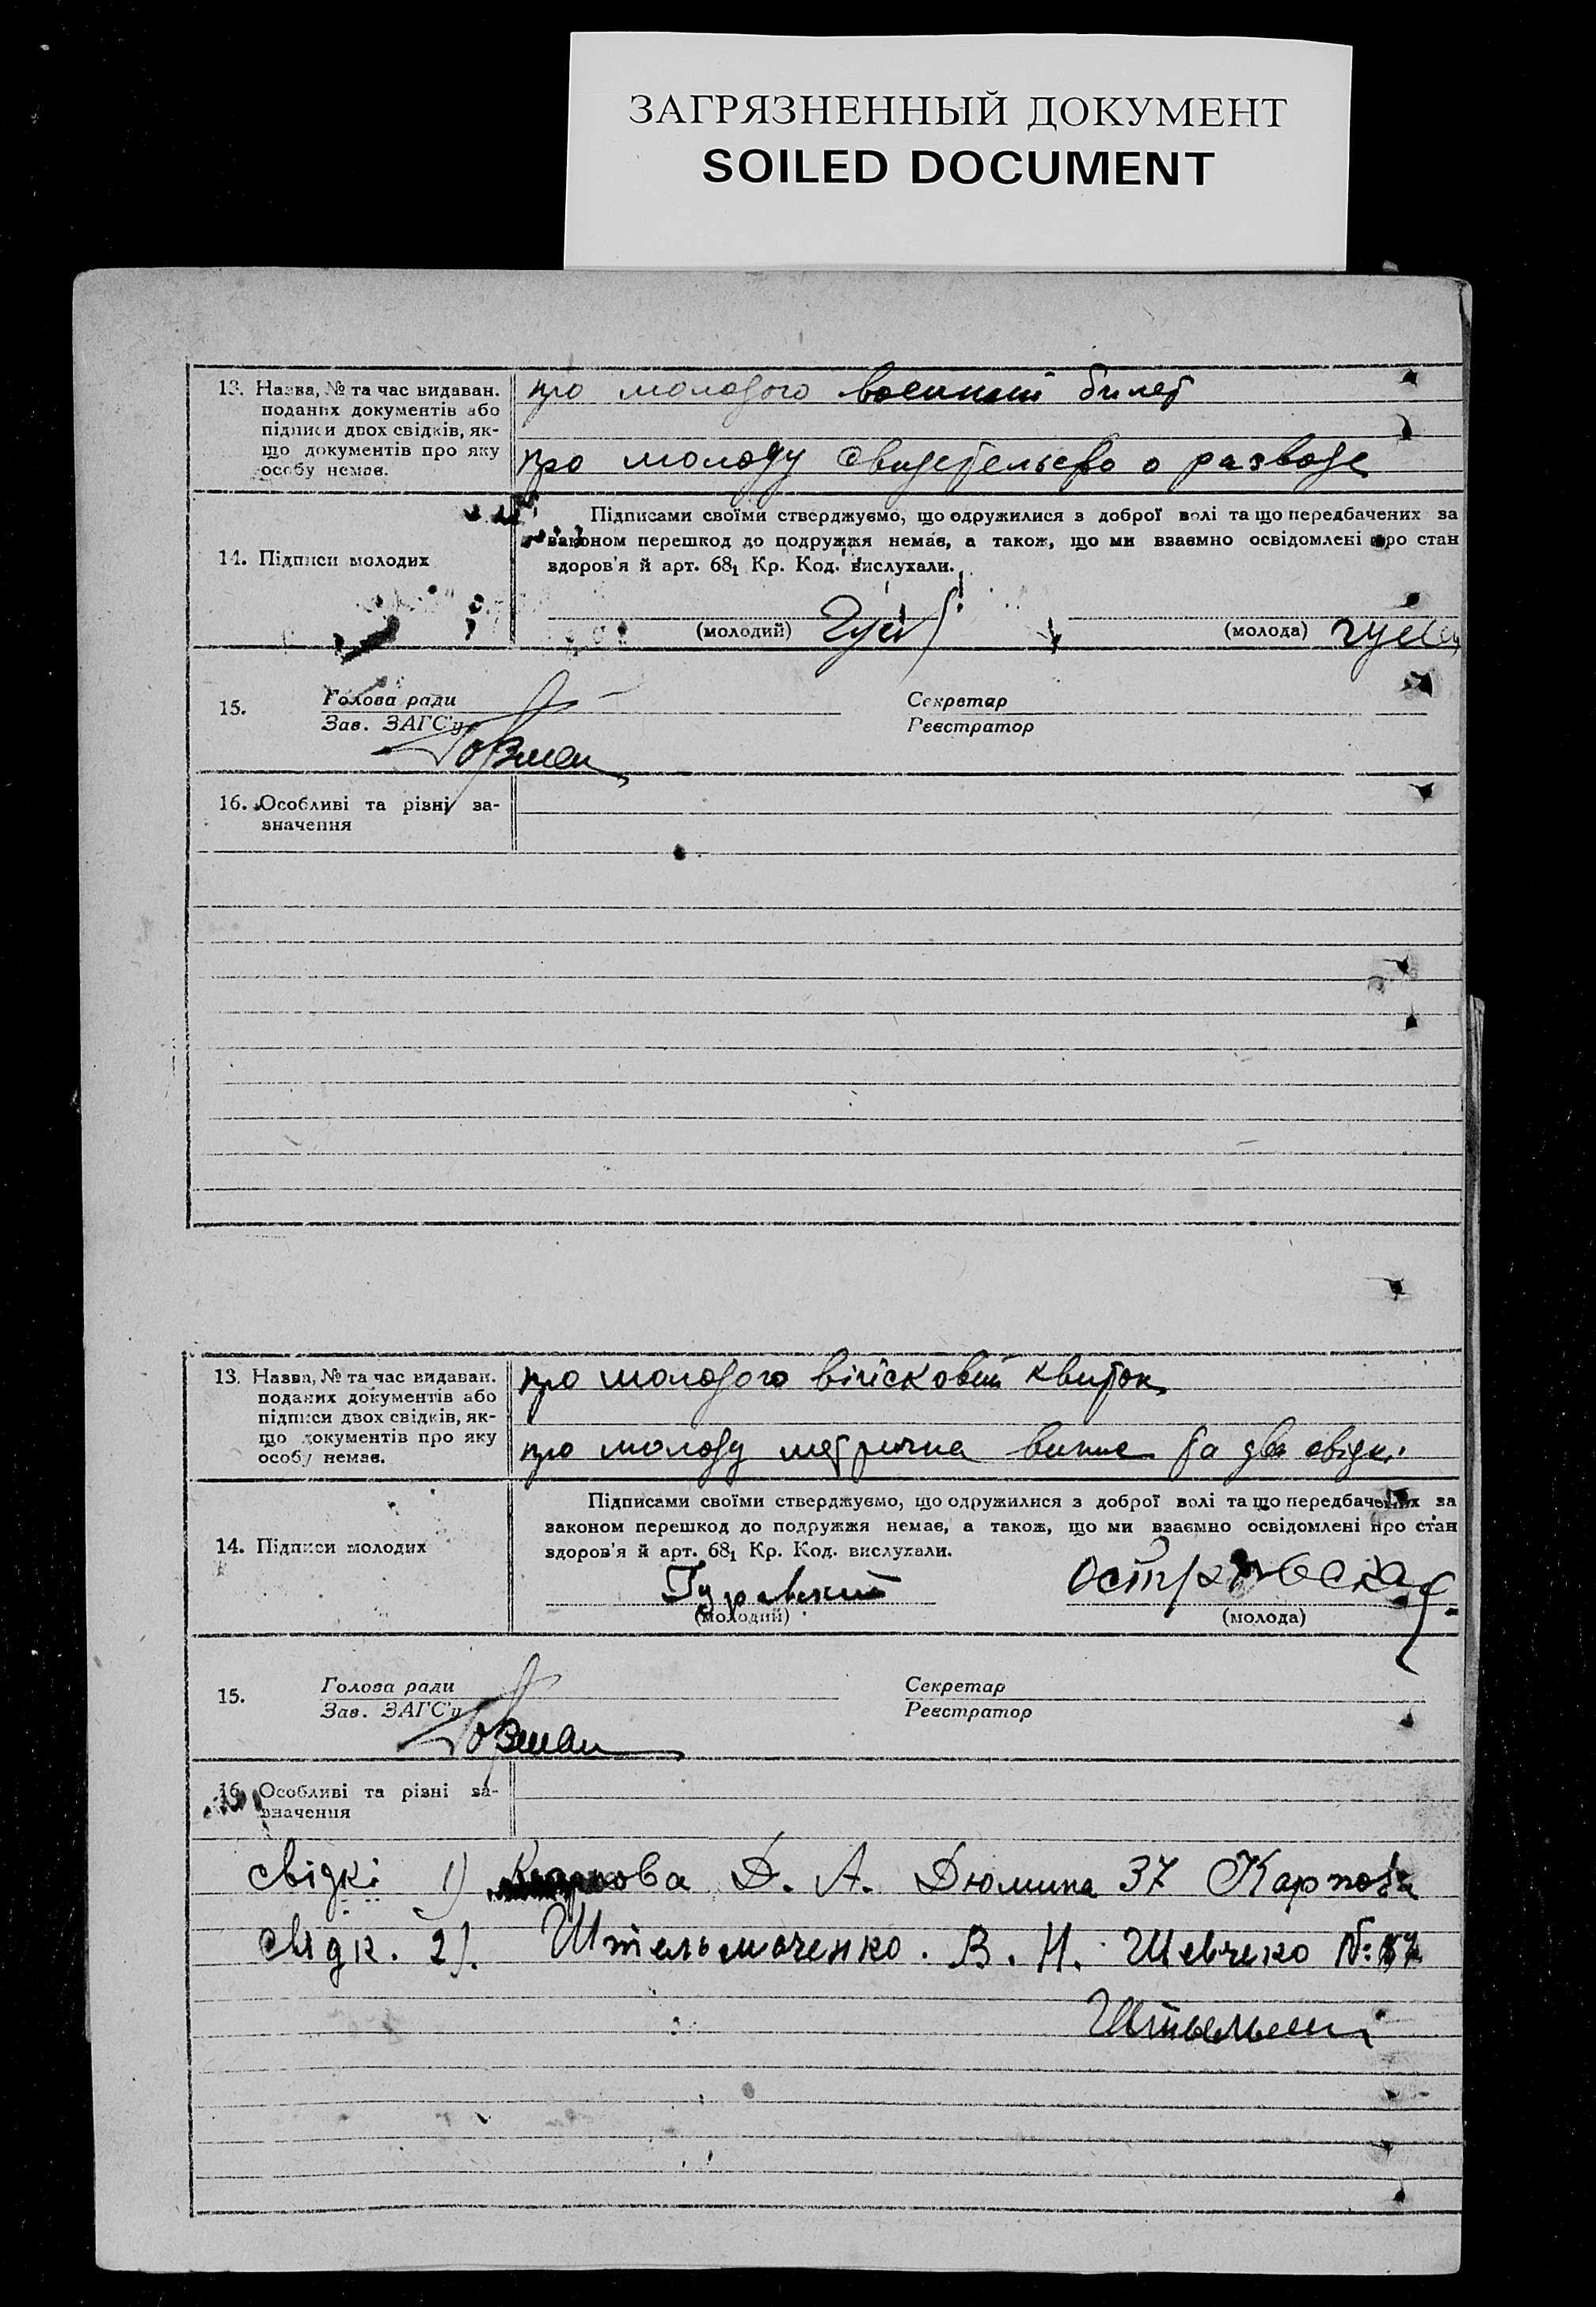 ЗАГРЯЗНЕННЫЙ ДОКУМЕНТ
SOILED DOCUMENT
13. Назва, № та час видаван.
поданих документів або
підписи двох свідків, як-
що документів про яку
особу немає.
про молодого военный билет
про молоду свидетельство о разводе
14. Підписи молодих
Підписами своїми стверджуємо, що одружилися з доброї волі та що передбачених за
законом перешкод до подружжя немає, а також, що ми взаємно освідомлені про стан
здоров'я й арт. 68₁ Кр. Код. вислухали.
(молодий)
(молода)
15.
Голова ради
Зав. ЗАГС'у
Секретар
Реєстратор
16. Особливі та різні за-
значення
13. Назва, № та час видаван.
поданих документів або
підписи двох свідків, як-
що документів про яку
особу немає.
про молодого військовий квиток
про молоду метрична випис та два свідк.
14. Підписи молодих
Підписами своїми стверджуємо, що одружилися з доброї волі та що передбачених за
законом перешкод до подружжя немає, а також, що ми взаємно освідомлені про стан
здоров'я й арт. 68₁ Кр. Код. вислухали.
Гуревский
(молодий)
Островская
(молода)
15.
Голова ради
Зав. ЗАГС'у
Секретар
Реєстратор
16. Особливі та різні за-
значення
свідкі 1) Д. А. Дюмина 37
свідк. 2). Штельмаченко. В. И. Шевченко №